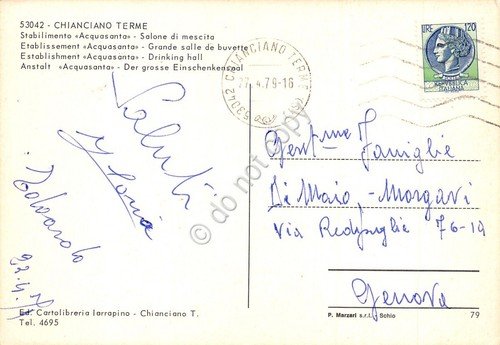 53042 - CHIANCIANO TERME
Stabilimento «Acquasanta» - Salone di mescita
Etablissement «Acquasanta» - Grande salle de buvette
Establishment «Acquasanta» - Drinking hall
Anstalt «Acquasanta» - Der grosse Einschenkensaal
53042 CHIANCIANO TERME (SI)
4.79-16
LIRE 120
REPUBBLICA
ITALIANA
Saluti
Edoardo
Gent.me Famiglie
Di Maio - Morgavi
Via Redipuglia 76-19
Genova
do not copy
Ed. Cartolibreria Iarrapino - Chianciano T.
Tel. 4695
P. Marzari s.r.l. Schio
79